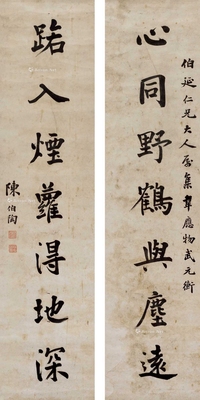 伯延仁兄大人屬集韋應物武元衡
心同野鶴與塵遠
路入煙蘿得地深
陳伯陶